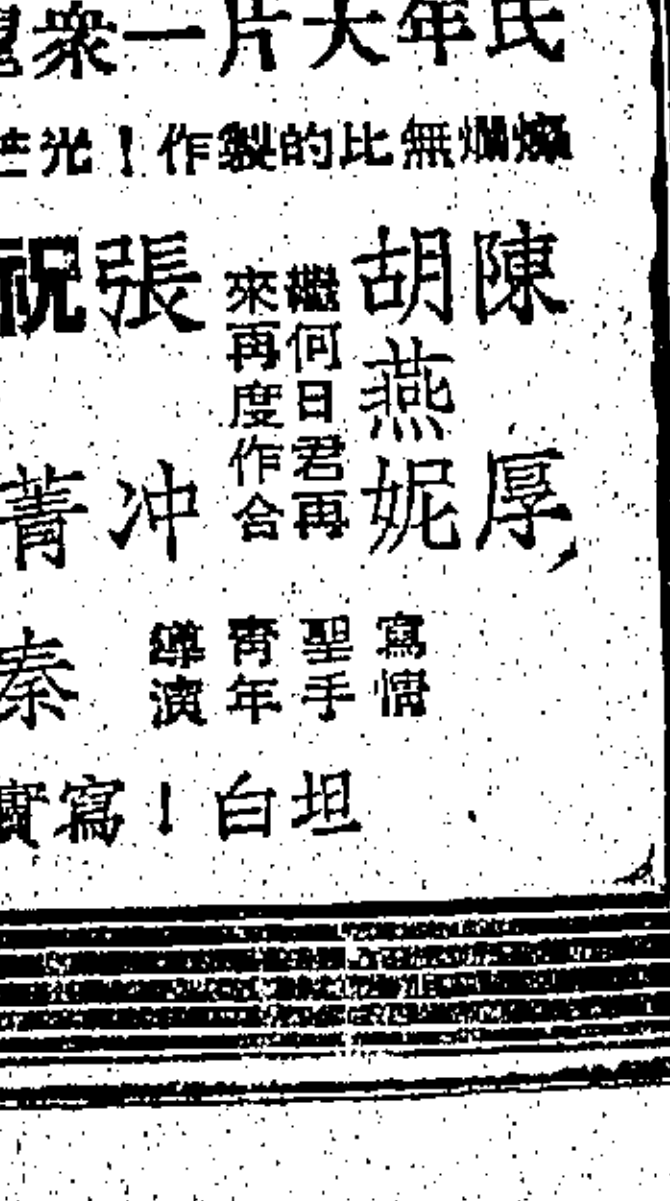 年大片一衆
燦爛無比的製作!光芒
陳厚
胡燕妮
繼何日君再
來再度作合
張冲
祝菁
寫情
聖手
青年
導演
秦
坦白!寫實